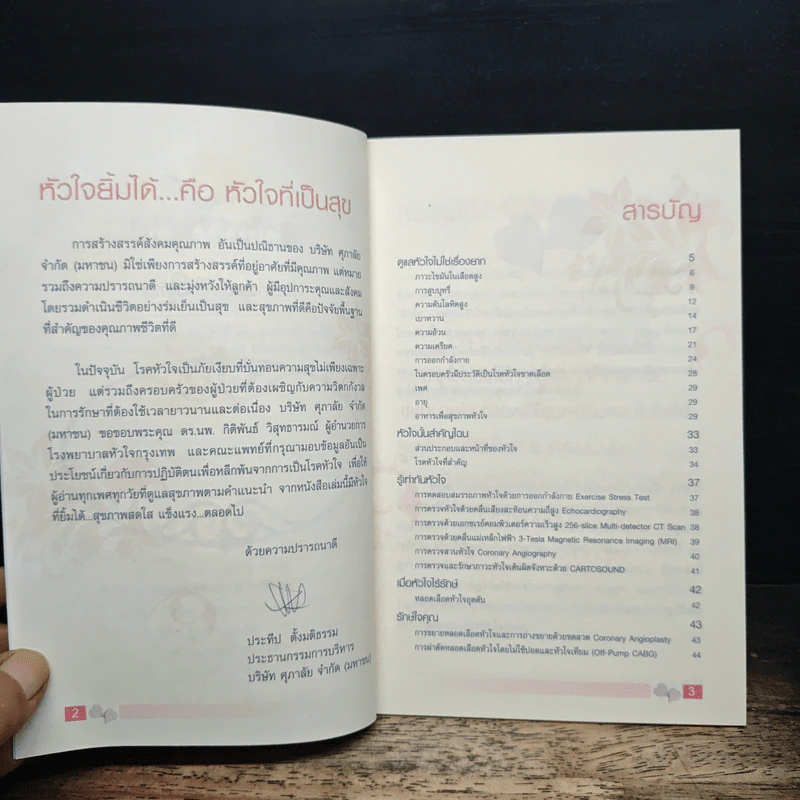 หัวใจยิ้มได้...คือ หัวใจที่เป็นสุข
การสร้างสรรค์สังคมคุณภาพ อันเป็นปณิธานของ บริษัท ศุภาลัย
จำกัด (มหาชน) มิใช่เพียงการสร้างสรรค์ที่อยู่อาศัยที่มีคุณภาพ แต่หมาย
รวมถึงความปรารถนาดี และมุ่งหวังให้ลูกค้า ผู้มีอุปการะคุณและสังคม
โดยรวมดำเนินชีวิตอย่างร่มเย็นเป็นสุข และสุขภาพที่ดีคือปัจจัยพื้นฐาน
ที่สำคัญของคุณภาพชีวิตที่ดี
ในปัจจุบัน โรคหัวใจเป็นภัยเงียบที่บั่นทอนความสุขไม่เพียงเฉพาะ
ผู้ป่วย แต่รวมถึงครอบครัวของผู้ป่วยที่ต้องเผชิญกับความวิตกกังวล
ในการรักษาที่ต้องใช้เวลายาวนานและต่อเนื่อง บริษัท ศุภาลัย จำกัด
(มหาชน) ขอขอบพระคุณ ดร.นพ. กิติพันธ์ วิสุทธารมณ์ ผู้อำนวยการ
โรงพยาบาลหัวใจกรุงเทพ และคณะแพทย์ที่กรุณามอบข้อมูลอันเป็น
ประโยชน์เกี่ยวกับการปฏิบัติตนเพื่อหลีกพ้นจากการเป็นโรคหัวใจ เพื่อให้
ผู้อ่านทุกเพศทุกวัยที่ดูแลสุขภาพตามคำแนะนำ จากหนังสือเล่มนี้มีหัวใจ
ที่ยิ้มได้...สุขภาพสดใส แข็งแรง...ตลอดไป
ด้วยความปรารถนาดี
ประทีป ตั้งมติธรรม
ประธานกรรมการบริหาร
บริษัท ศุภาลัย จำกัด (มหาชน)
2
สารบัญ
ดูแลหัวใจไม่ใช่เรื่องยาก 5
ภาวะไขมันในเลือดสูง 6
การสูบบุหรี่ 9
ความดันโลหิตสูง 12
เบาหวาน 14
ความอ้วน 17
ความเครียด 21
การออกกำลังกาย 24
ในครอบครัวมีประวัติเป็นโรคหัวใจขาดเลือด 28
เพศ 29
อายุ 29
อาหารเพื่อสุขภาพหัวใจ 29
หัวใจนั้นสำคัญไฉน 33
ส่วนประกอบและหน้าที่ของหัวใจ 33
โรคหัวใจที่สำคัญ 34
รู้เท่าทันหัวใจ 37
การทดสอบสมรรถภาพหัวใจด้วยการออกกำลังกาย Exercise Stress Test 37
การตรวจหัวใจด้วยคลื่นเสียงสะท้อนความถี่สูง Echocardiography 38
การตรวจด้วยเอกซเรย์คอมพิวเตอร์ความเร็วสูง 256-slice Multi-detector CT Scan 38
การตรวจด้วยคลื่นแม่เหล็กไฟฟ้า 3-Tesla Magnetic Resonance Imaging (MRI) 39
การตรวจสวนหัวใจ Coronary Angiography 40
การตรวจและรักษาภาวะหัวใจเต้นผิดจังหวะด้วย CARTOSOUND 41
เมื่อหัวใจไร้รักษ์ 42
หลอดเลือดหัวใจอุดตัน 42
รักษ์ใจคุณ 43
การขยายหลอดเลือดหัวใจและการถ่างขยายด้วยขดลวด Coronary Angioplasty 43
การผ่าตัดหลอดเลือดหัวใจโดยไม่ใช้ปอดและหัวใจเทียม (Off-Pump CABG) 44
3